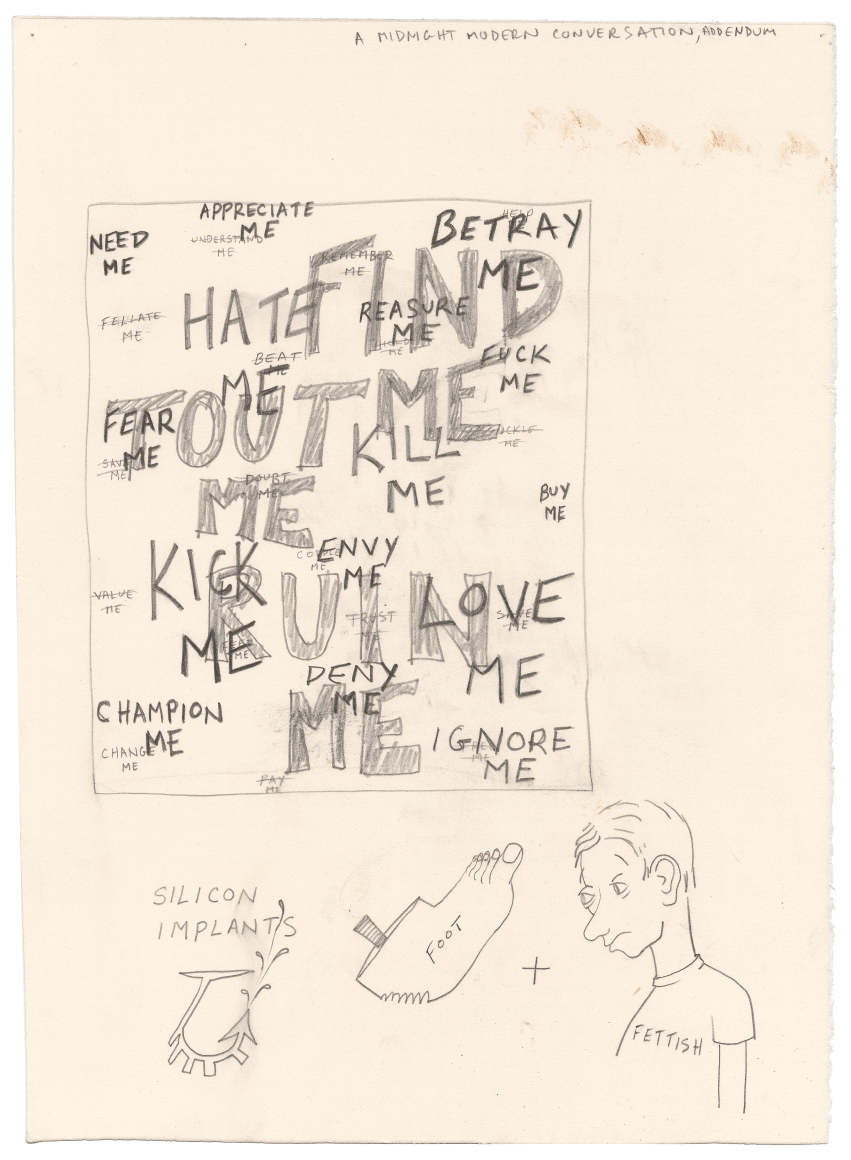 A MIDNIGHT MODERN CONVERSATION, ADDENDUM
APPRECIATE
ME
NEED
ME
UNDERSTAND
ME
HELP
BETRAY
ME
REMEMBER
ME
FIND
ME
HATE
ME
REASURE
ME
FELLATE
ME
BEAT
ME
FUCK
ME
TOUT
ME
FEAR
ME
SAVE
ME
KILL
ME
ME
DOUBT
ME
BUY
ME
KICK
ME
ENVY
ME
ME
VALUE
ME
RUIN
ME
TRUST
ME
LOVE
ME
ME
ME
DENY
ME
CHAMPION
ME
CHANGE
ME
IGNORE
ME
PAY
ME
SILICON
IMPLANTS
FOOT
+
FETTISH